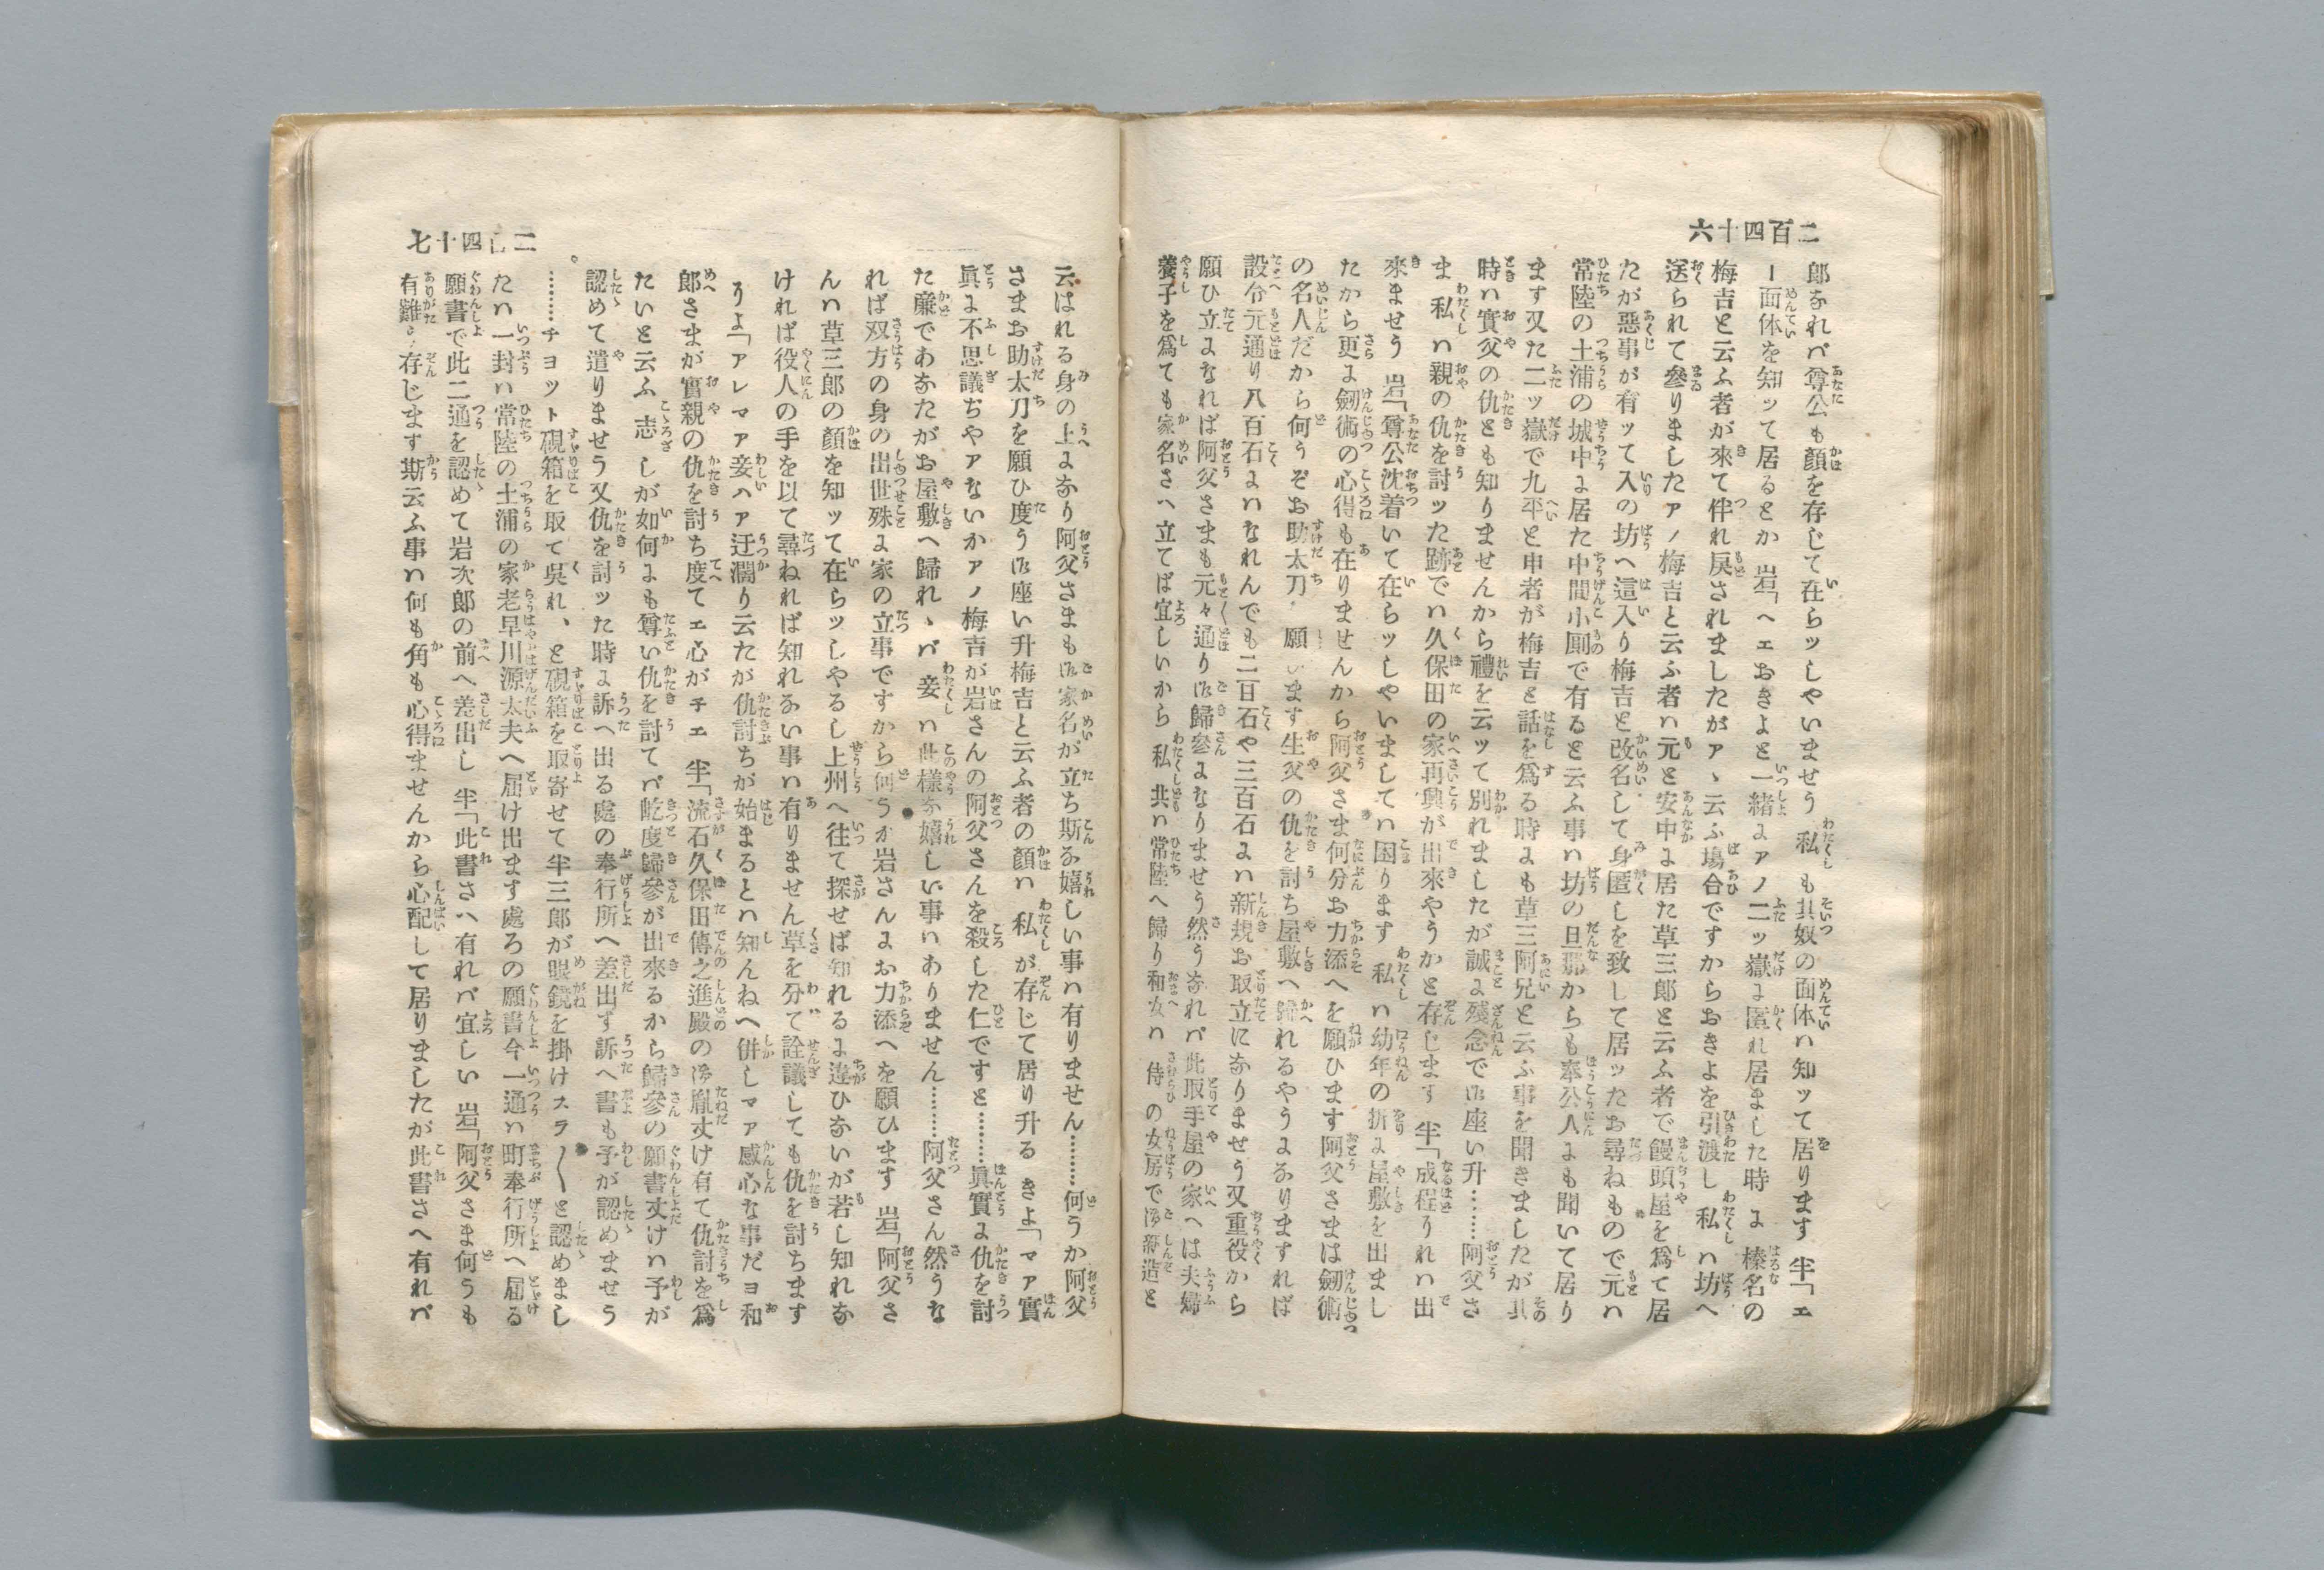 二百四十六
郎なれバ尊公も顔を存じて在らッしやいませう 私も其奴の面体ハ知ッて居ります 半「エ
ー面体を知ッて居るとか 岩「ヘエおきよと一緒よアノ二ッ嶽よ匿れ居ました時よ榛名の
梅吉と云ふ者が來て伴れ戻されましたがアヽ云ふ塲合ですからおきよを引渡し私ハ坊へ
送られて參りましたアノ梅吉と云ふ者ハ元と安中よ居た草三郎と云ふ者で饅頭屋を爲て居
たが惡事が有ッて入の坊へ這入り梅吉と改名して身匿しを致して居ッたお尋ねもので元ハ
常陸の土浦の城中よ居た中間小厠で有ると云ふ事ハ坊の旦那からも奉公人よも聞いて居り
ます又た二ッ嶽で九平と申者が梅吉と話を爲る時よも草三阿兄と云ふ事を聞きましたが其
時ハ實父の仇とも知りませんから禮を云ッて別れましたが誠よ殘念で御座い升……阿父さ
ま私ハ親の仇を討ッた跡でハ久保田の家再興が出來やうかと存じます 半「成程うれハ出
來ませう 岩「尊公沈着いて在らッしやいましてハ困ります 私ハ幼年の折よ屋敷を出まし
たから更よ劔術の心得も在りませんから阿父さま何分お力添へを願ひます阿父さまは劔術
の名人だから何うぞお助太刀 願 います生父の仇を討ち屋敷へ歸れるやうよなりますれば
設令元通り八百石よハなれんでも二百石や三百石よハ新規お取立になりませう又重役から
願ひ立よなれば阿父さまも元々通り御歸參よなりませう然うなれバ此取手屋の家へは夫婦
養子を爲ても家名さへ立てば宜しいから 私共ハ常陸へ歸り和女ハ侍の女房で御新造と
二百四十七
云はれる身の上よなり阿父さまも御家名が立ち斯んな嬉しい事ハ有りません………何うか阿父
さまお助太刀を願ひ度う御座い升梅吉と云ふ者の顔ハ私が存じて居り升る きよ「マア實
眞よ不思議ぢやアないかアノ梅吉が岩さんの阿父さんを殺した仁ですと………眞實よ仇を討
た廉であなたがお屋敷へ歸れゝバ妾ハ此樣な嬉しい事ハありません………阿父さん然うな
れば双方の身の出世殊よ家の立事ですから何うか岩さんよお力添へを願ひます 岩「阿父さ
んハ草三郎の顔を知ッて在らッしやるし上州へ往て探せば知れるよ違ひないが若し知れな
ければ役人の手を以て尋ねれば知れない事ハ有りません草を分て詮議しても仇を討ちます
うよ「アレマア妾ハア迂濶り云たが仇討ちが始まるとハ知んねへ併しマア感心な事だヨ和
郎さまが實親の仇を討ち度てエ心がチエ 半「流石久保田傳之進殿の御胤丈け有て仇討を爲
たいと云ふ志しが如何よも尊い仇を討てバ屹度歸參が出來るから歸參の願書丈けハ予が
認めて遣りませう又仇を討ッた時よ訴へ出る處の奉行所へ差出す訴へ書も予が認めませう
………チヨット硯箱を取て呉れ、と硯箱を取寄せて半三郎が眼鏡を掛けスラ〱と認めまし
たハ一封ハ常陸の土浦の家老早川源太夫へ届け出ます處ろの願書今一通ハ町奉行所へ届る
願書で此二通を認めて岩次郎の前へ差出し 半「此書さへ有れバ宜しい 岩「阿父さま何うも
有難 存じます斯云ふ事ハ何も角も心得ませんから心配して居りましたが此書さへ有れバ